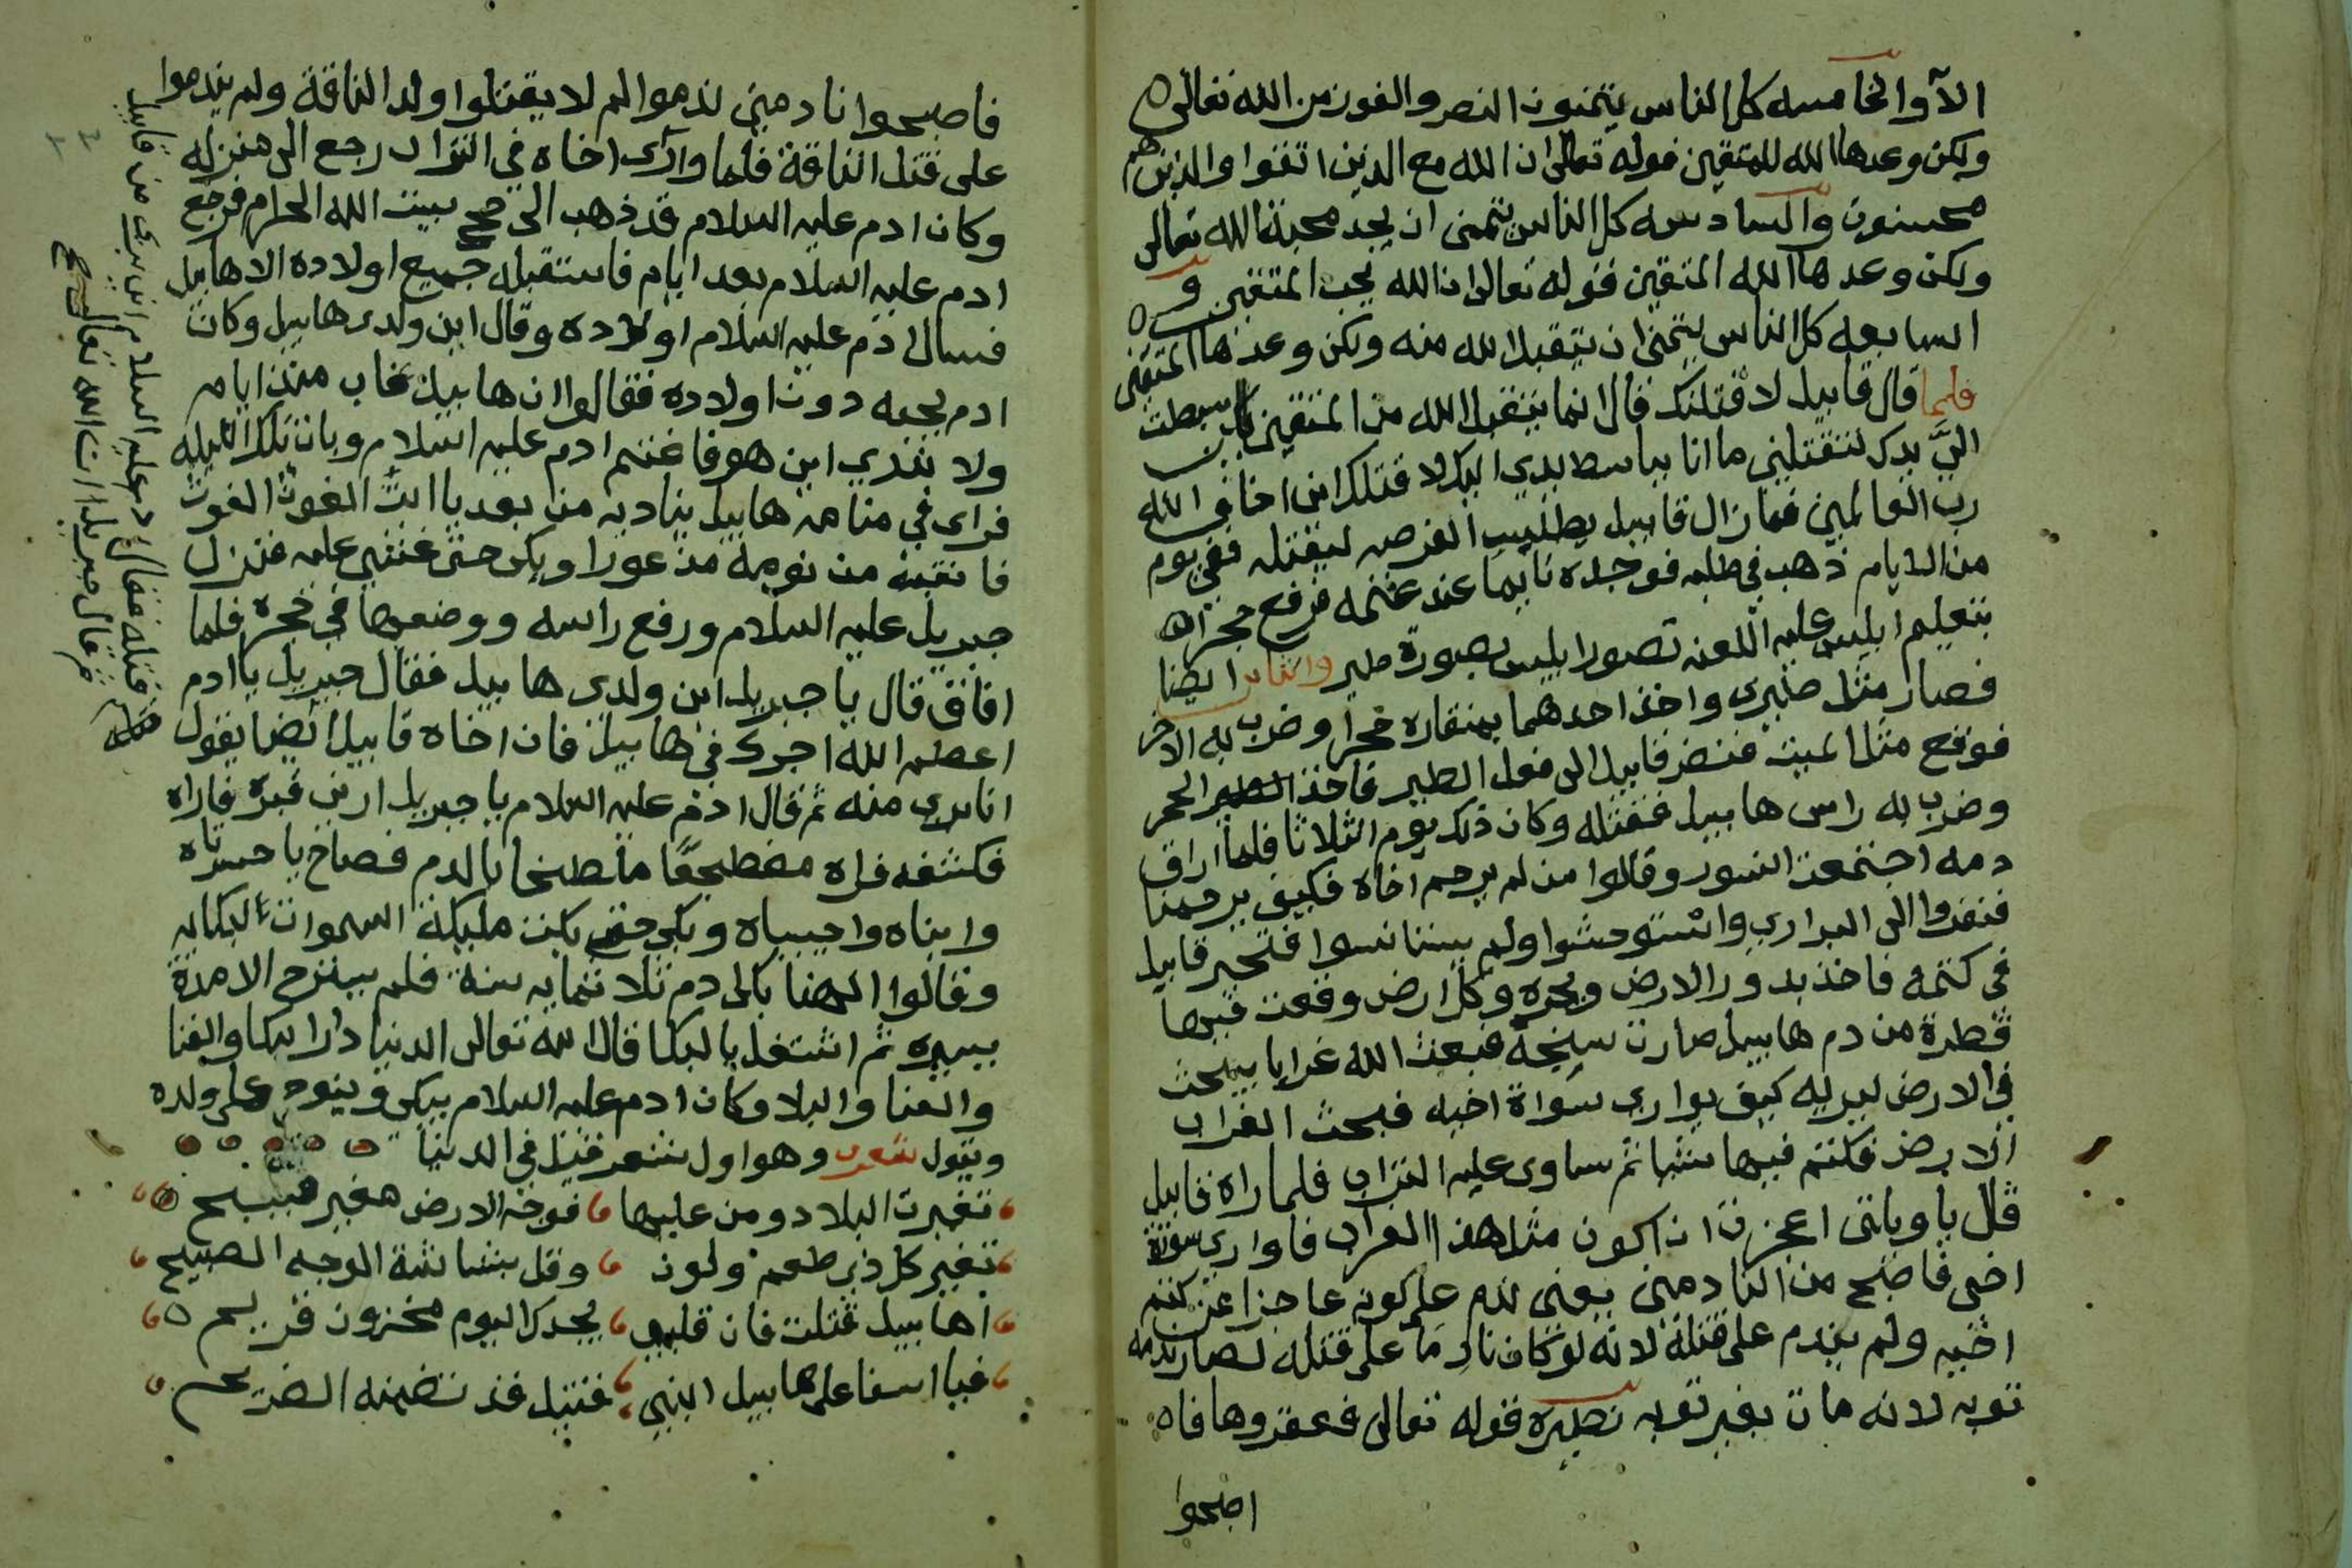 الا والخامسه كل الناس يتمنون النصر والفوز من الله تعالى
ولكن وعدها الله للمتقين قوله تعالى ان الله مع الذين اتقوا والذين هم
محسنون والسادسه كل الناس يتمنى ان يجد محبة الله تعالى
ولكن وعدها الله المتقين فقوله تعالى ان الله يحب المتقين و
السابعه كل الناس يتمنى ان يتقبل الله منه ولكن وعدها المتقين
فلما قال قابيل لاقتلنك قال انما يتقبل الله من المتقين لين بسطت
اليَّ يدك لتقتلني ما انا بباسط يدي اليك لاقتلك اني اخاف الله
رب العالمين فما زال قابيل يطلب الفرصه ليقتله ففي يوم
من الايام ذهب في طلبه فوجده نايما عند غنمه فرفع حجرا
بتعليم ابليس عليه اللعنه تصور ابليس بصورة طير والثاني ايضا
فصار مثل طيري واخذ احدهما بمنقاره حجرا وضرب به الاخر
فوقع مثل الميت فنضر قابيل الى فعل الطير فاخذ الحجر
وضرب به راس هابيل فقتله وكان ذلك يوم الثلاثا فلما اراق
دمه اجتمعت النسور وقالوا من لم يرحم اخاه فكيف يرحمنا
فنفروا الى البراري واستوحشوا ولم يستانسوا فتحير قابيل
في كتمه فاخذ يدور الارض ويجره وكل ارض وقعت فيها
قطرة من دم هابيل صارت سبخة فبعث الله غرابا يبحث
في الارض ليريه كيف يواري سواة اخيه فبحث الغراب
الارض فكتم فيها شيا ثم ساوى عليه التراب فلما راه قابيل
قال يا ويلتى اعجزت ان اكون مثل هذا الغراب فاواري سواة
اخي فاصبح من النادمين يعني ندم على كونه عاجزا عن كتم
اخيه ولم يندم على قتله لانه لو كان نادما على قتله لصار ندمه
توبه لانه مات بغير توبه نظيره قوله تعالى فعقروها فا
اصبحوا
فاصبحوا نادمين ندموا لم لا يقتلوا ولد الناقة ولم يندموا
على قتل الناقة فلما وارى اخاه في التراب رجع الى منزله
وكان ادم عليه السلام قد ذهب الى حج بيت الله الحرام فرجع
ادم عليه السلام بعد ايام فاستقبله جميع اولاده الا هابيل
فسال ادم عليه السلام اولاده وقال اين ولدي هابيل وكان
ادم يحبه دون اولاده فقالوا ان هابيل غاب منذ ايام
ولا ندري اين هو فاغتم ادم عليه السلام وبات تلك الليله
فراى في منامه هابيل يناديه من بعد يا ابت الغوث الغوث
فانتبه من نومه مذعورا وبكى حتى غشي عليه فنزل
جبريل عليه السلام ورفع راسه ووضعها في حجره فلما
افاق قال يا جبريل اين ولدي هابيل فقال جبريل يا ادم
اعظم الله اجرك في هابيل فان اخاه قابيل ايضا يقول
انا بري منه ثم قال ادم عليه السلام يا جبريل ارني قبره فاراه
فكشفه فراه مضطجعًا ملطخا بالدم فصاح يا حسرتاه
وا ابناه واحبيباه وبكى حتى بكت مليكة السموات لبكايه
وقالوا الهنا بكى ادم ثلاثمايه سنة فلم يسترح الا مدة
يسيره ثم اشتغل بالبكا قال الله تعالى الدنيا دار البكا والفنا
والعنا والبلا وكان ادم عليه السلام يبكي وينوح على ولده
ويقول شعر وهو اول شعر قيل في الدنيا
تغيرت البلاد ومن عليها فوجه الارض مغبر قبيح
تغير كل ذي طعم ولون وقل بشاشة الوجه الصبيح
اهابيل قتلت فان قلبي يجدك اليوم محزون قريح
فيا اسفا على هابيل ابني قتيل قد تضمنه الضريح
قتله فقال ادم عليه السلام انا بري من قابيل
فقال جبريل ان الله تعالى